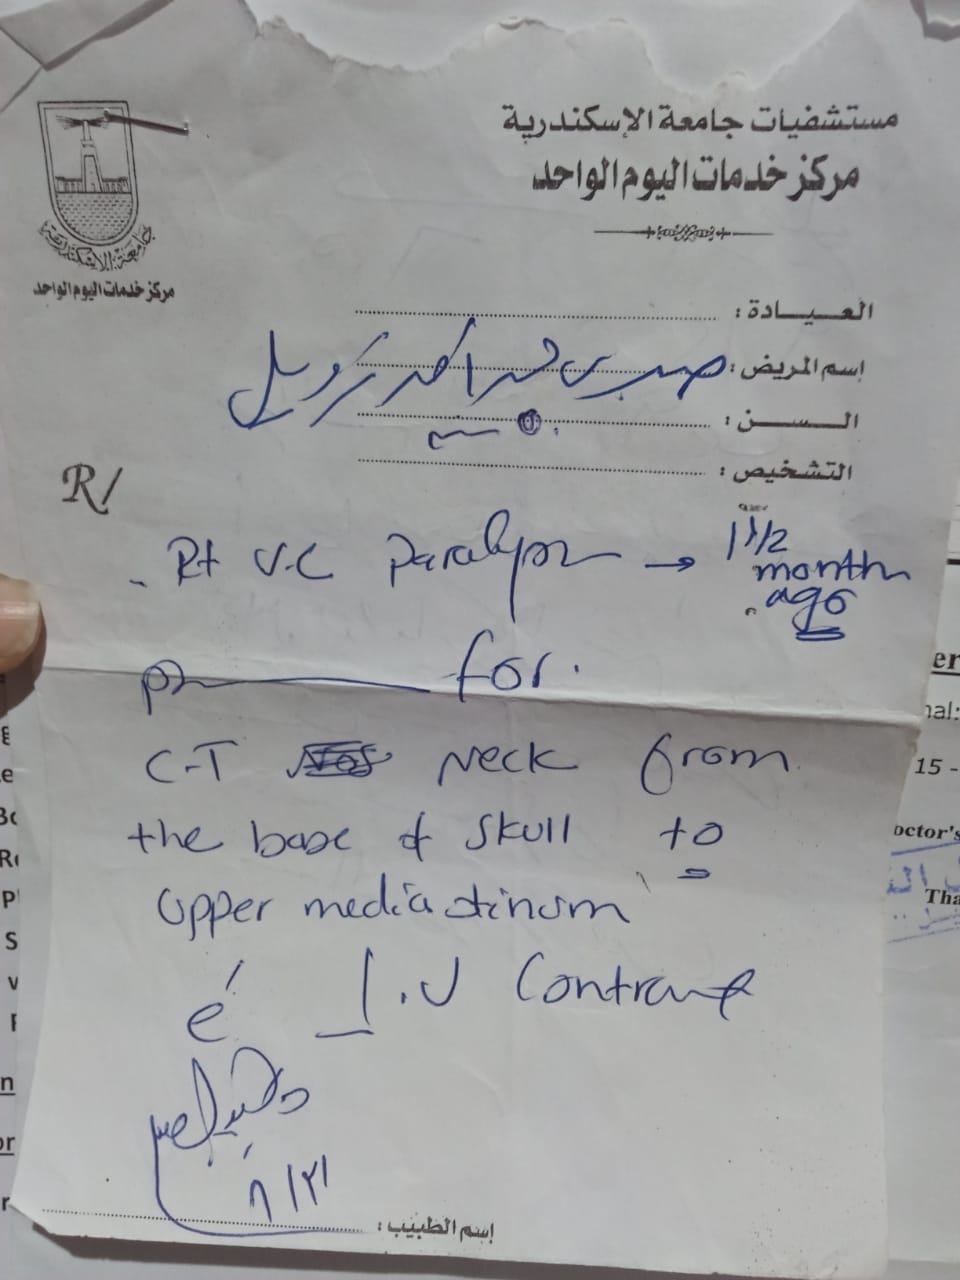 مستشفيات جامعة الإسكندرية
مركز خدمات اليوم الواحد
جامعة الإسكندرية
مركز خدمات اليوم الواحد
العيادة :
إسم المريض :
السن :
التشخيص :
R/
- Rt V.C Paralysis → 1 1/2 month ago
for.
C-T Neck from
the base of skull to
Upper mediastinum
é I.V Contrast
٨/٢١
إسم الطبيب :
er
nal:
15 -
octor's
Tha